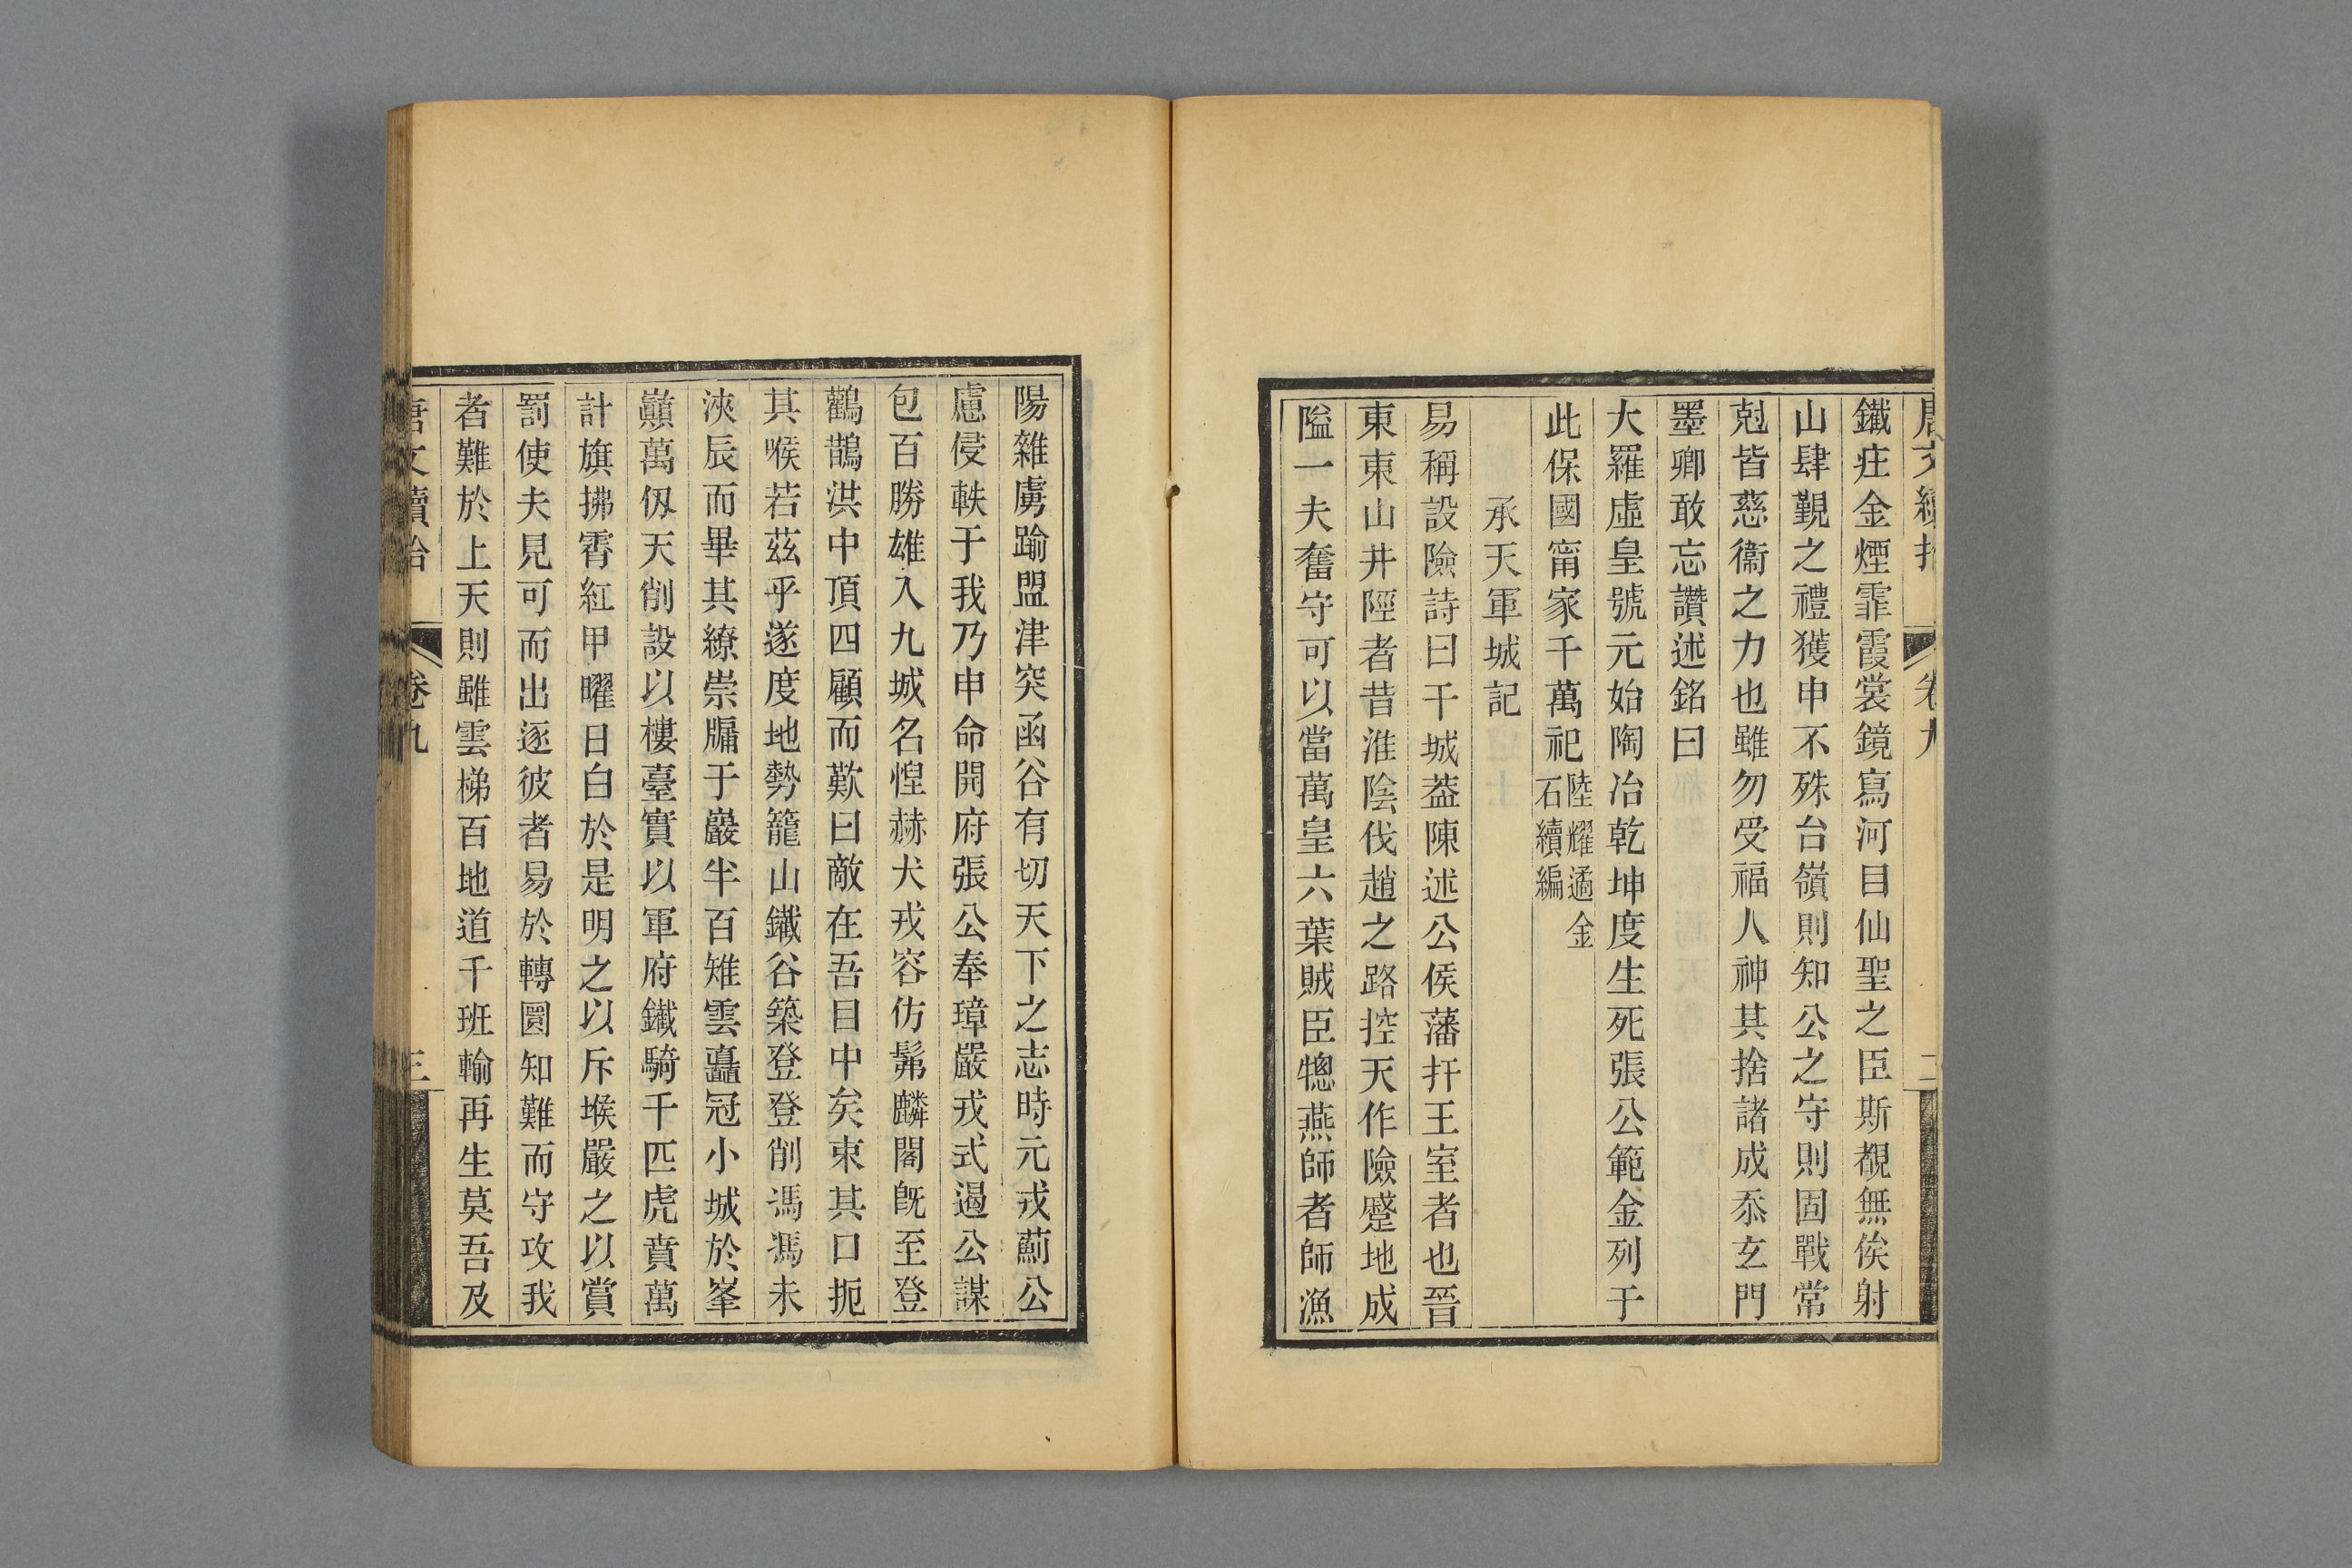 唐文續拾 卷九 二
鐵荘金煙霏霞裳鏡寫河目仙聖之臣斯覩無俟射
山肆覲之禮獲申不殊台嶺則知公之守則固戰常
剋皆慈衞之力也雖勿受福人神其捨諸成忝玄門
墨卿敢忘讚述銘曰
大羅虛皇號元始陶冶乾坤度生死張公範金列于
此保國甯家千萬祀陸耀遹金石續編
承天軍城記
易稱設險詩曰干城葢陳述公侯藩扞王室者也晉
東東山井陘者昔淮陰伐趙之路控天作險蹙地成
隘一夫奮守可以當萬皇六葉賊臣憁燕師者師漁
陽雜虜踰盟津突函谷有切天下之志時元戎薊公
慮侵軼于我乃申命開府張公奉璋嚴戎式遏公謀
包百勝雄入九城名惶赫犬戎容仿髴麟閣旣至登
鸛鵲洪中頂四顧而歎曰敵在吾目中矣東其口扼
其喉若茲乎遂度地勢籠山鐵谷築登登削馮馮未
浹辰而畢其繚崇牖于巖半百雉雲矗冠小城於峯
巓萬仭天削設以樓臺實以軍府鐵騎千匹虎賁萬
計旗拂霄紅甲曜日白於是明之以斥堠嚴之以賞
罰使夫見可而出逐彼者易於轉圜知難而守攻我
者難於上天則雖雲梯百地道千班輸再生莫吾及
唐文續拾 卷九 三